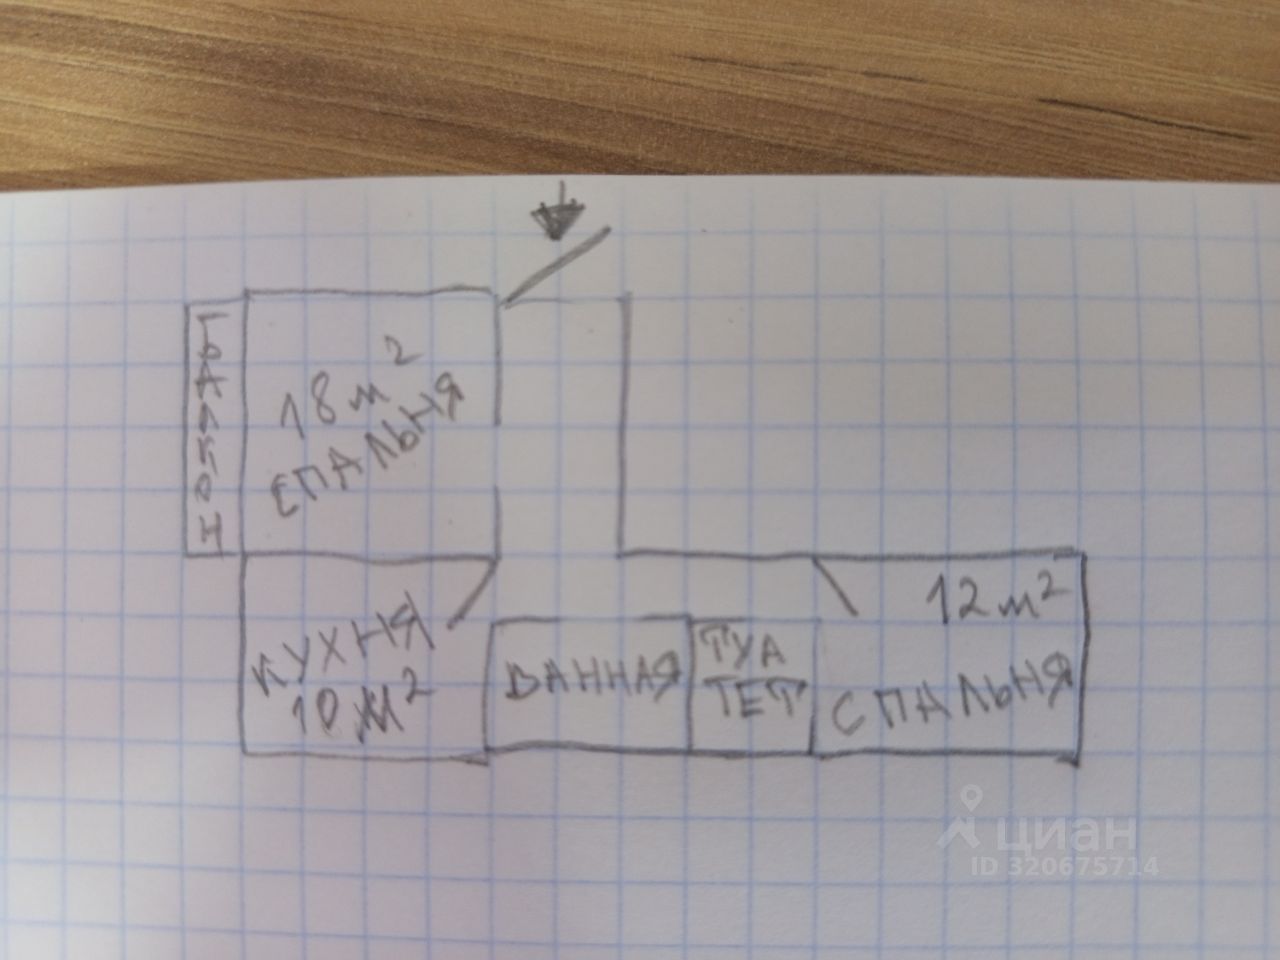 БАЛКОН
18 м²
СПАЛЬНЯ
КУХНЯ
10 м²
ВАННАЯ
ТУА
ТЕТ
12 м²
СПАЛЬНЯ
циан
ID 320675714